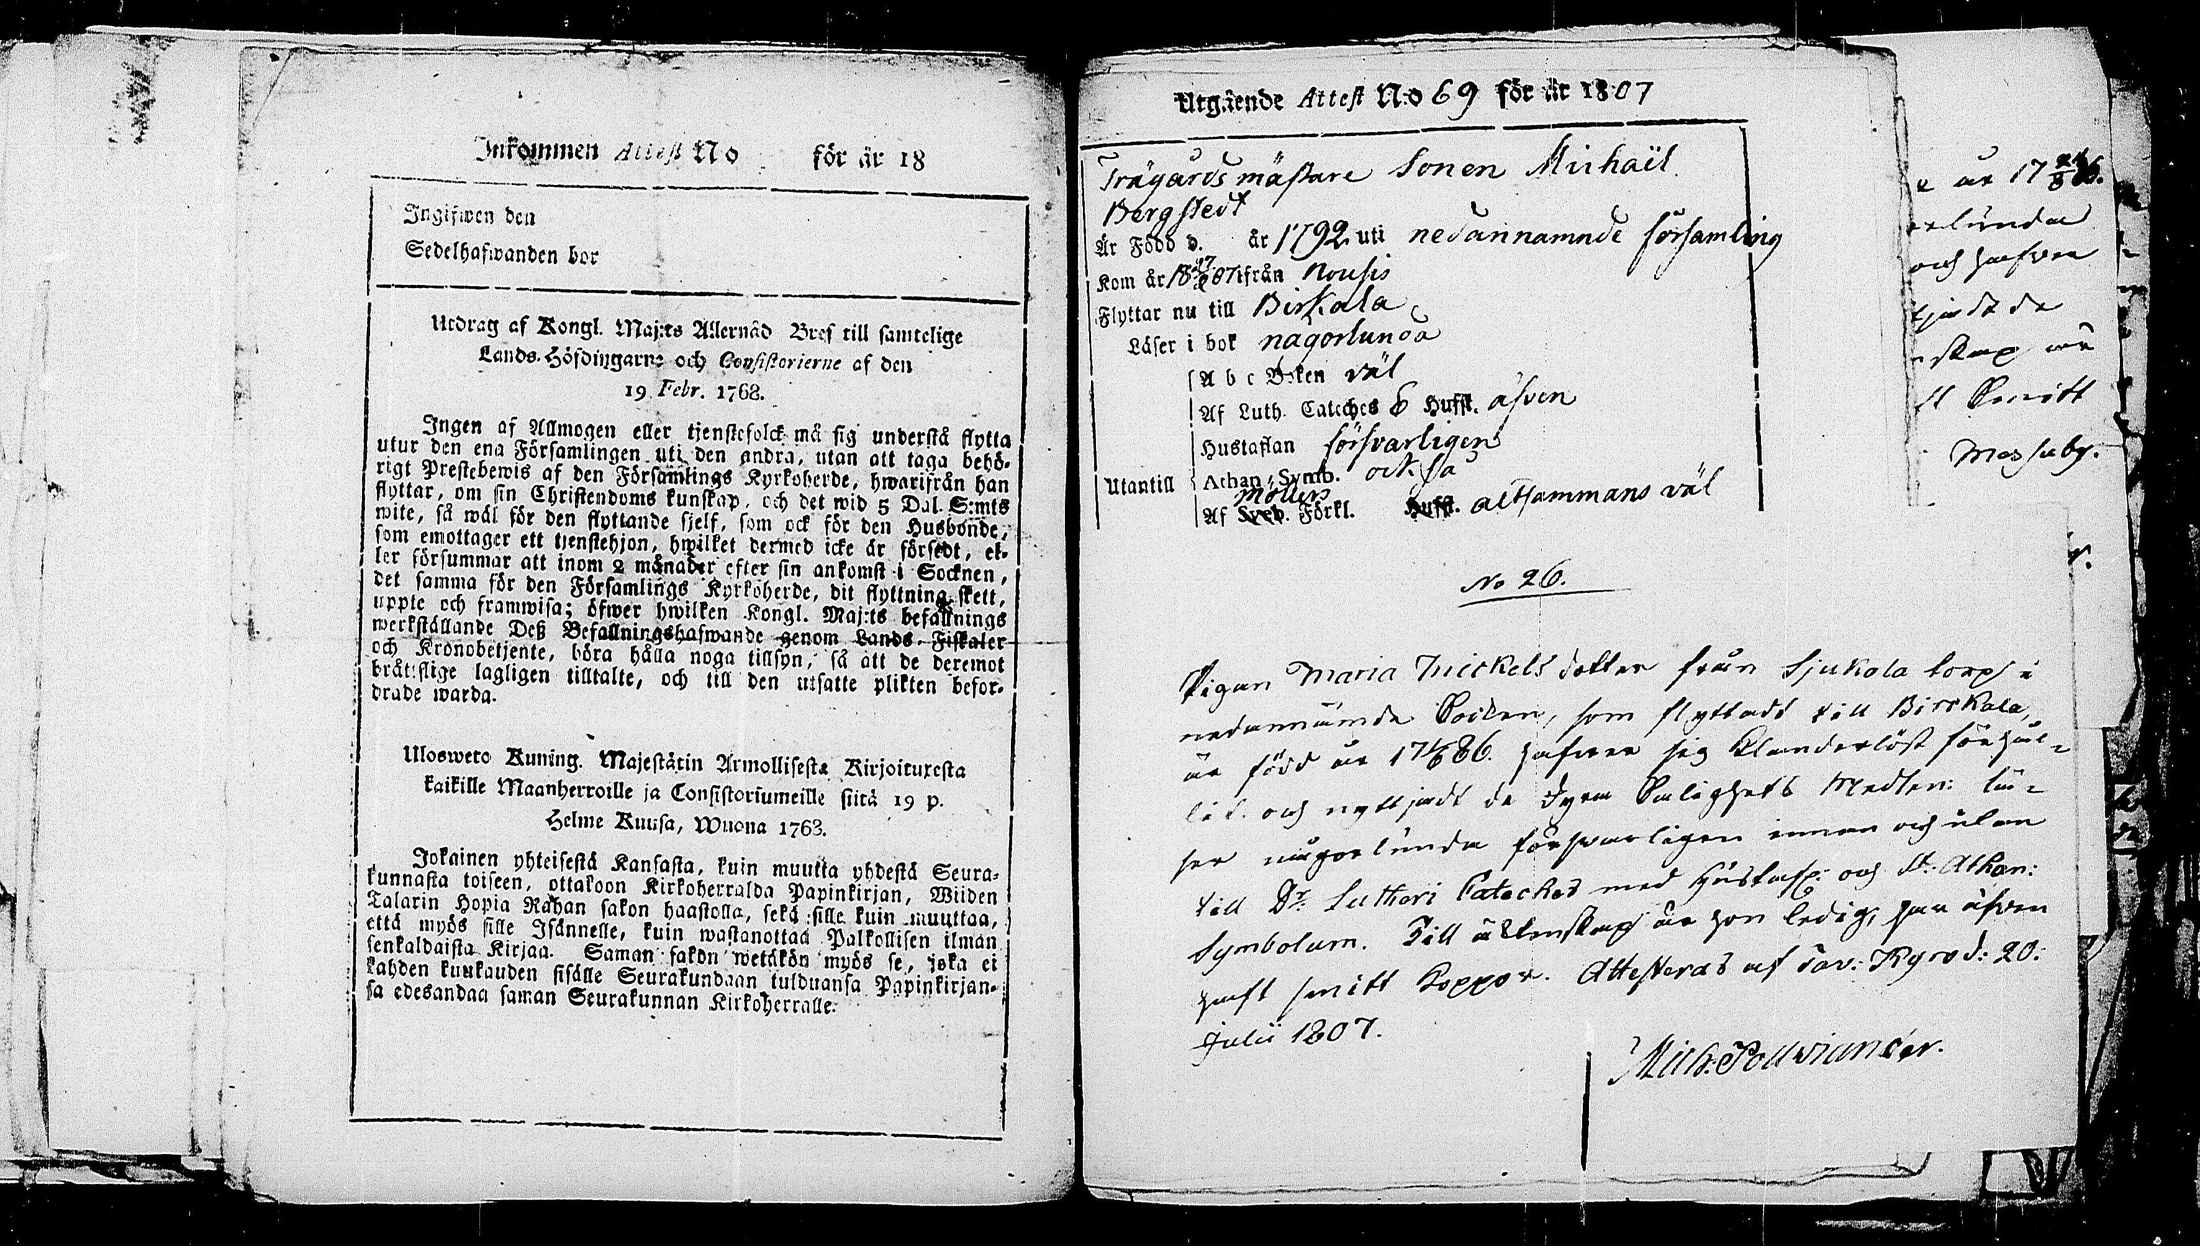 Inkommen Attest No för år 18
Ingifwen den
Sedelhafwanden bor
Utdrag af Kongl. Maj:ts Allernåd Bref till samtelige
Lands-Höfdingarne och Consistorierne af den
19 Febr. 1768.
Ingen af Allmogen eller tjenstefolck må sig understå flytta
utur den ena Församlingen uti den andra, utan att taga behö-
rigt Prestebewis af den Församlings Kyrkoherde, hwarifrån han
flyttar, om sin Christendoms kunskap, och det wid 5 Dal. S:mts
wite, så wäl för den flyttande sjelf, som ock för den Husbonde,
som emottager ett tjenstehjon, hwilket dermed icke är försedt, el-
ler försummar att inom 2 månader efter sin ankomst i Socknen,
det samma för den Församlings Kyrkoherde, dit flyttning skett,
uppte och framwisa; öfwer hwilken Kongl. Maj:ts befallnings
werkställande Deß Befallningshafwande genom Lands-Fiskaler
och Kronobetjente, böra hålla noga tillsyn, så att de deremot
bråttslige lagligen tilltalte, och till den utsatte plikten befor-
drade warda.
Uloswero Kuning. Majestätin Armollisesta Kirjoituxesta
kaikille Maanherroille ja Consistoriumeille siitä 19 p.
Helme Kuusa, Wuona 1768.
Jokainen yhteisestä Kansasta, kuin muutta yhdestä Seura-
kunnasta toiseen, ottakoon Kirkoherralda Papinkirjan, Wiiden
Talarin Hopia Rahan sakon haastolla, sekä sille kuin muuttaa,
että myös sille Isännelle, kuin wastanottaa Palkollisen ilman
senkaldaista Kirjaa. Saman sakon wetäkön myös se, joka ei
kahden kuukauden sisälle Seurakundaan tulduansa Papinkirjan-
sa edesandaa saman Seurakunnan Kirkoherralle.
Utgående Attest No 69 för år 1807
Trägårdsmästare Sonen Michaël
Bergstedt
Är Född d. år 1792 uti nedannamnde församling
Kom år 18 07 ifrån Nousis
Flyttar nu till Birkala
Läser i bok någorlunda
A b c Boken väl
Af Luth. Cateches 6 Hufst. äfven
Hustaflan försvarligen
Utantill Athan. Symb. ock så
Möllers
Af Sveb. Förkl. Hufst. altsammans väl
No 26.
Pigan Maria Mickels dotter från Sjukola torp i
nedannämde Socken, som flyttadt till Birrkala,
är född år 17 86. hafver sig klanderlöst förhål-
lit och nyttjadt de dyra Salighets Medlen: lä-
ser någorlunda försvarligen innan och utan
till Dr. Lutheri Cateches med Hustafl: och St: Athan:
Symbolum. Till äktenskap är hon ledig, har äfven
haft smitt koppor. Attesteras af Tav: Kyro d: 20:
Julii 1807.
Mich: Pollviander.
e år 17 86.
och hafver
tjadt de
nskap är
ft Smitt
Massaby.